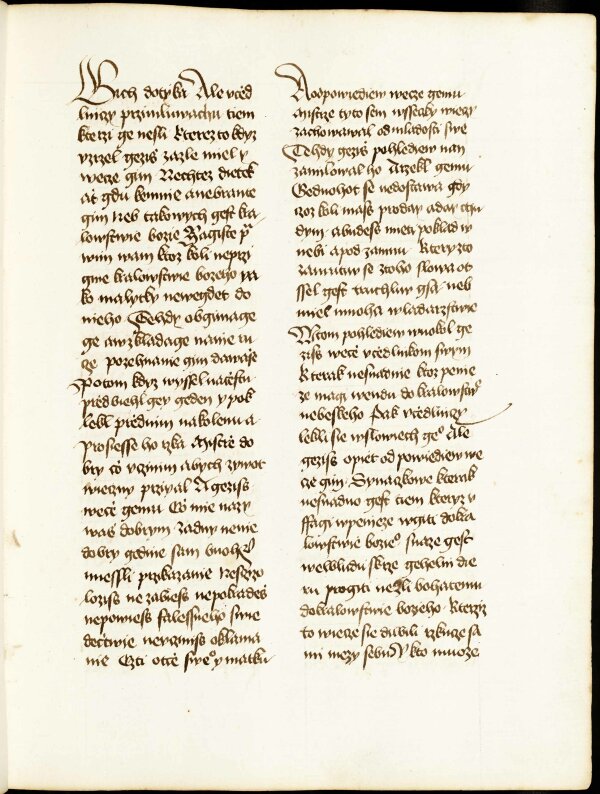 Bich dotykl Ale vczed
lniczy przimluwachu tiem
kterzi ge nesli Kterezto kdyz
vzrzel gezis zazle miel y
wecze gim Nechtez dietek
at gdu kemnie anebrante
gim Neb takowych gest kra
lowstwie bozie Zagiste p
wim wam ktoz koli neprzi
gme kralowstwie bozeho ya
ko malyczky newegdet do
nieho Tehdy obginage
ge awzkladage nanie ru
cze pozehnanie gim dawasse
Potom kdyz wyssel nacestu
przedbiehl gey geden y pok
lekl przednim nakolenu a
prosiesse ho rzka Mistrze do
bry czo vczinim abych zywot
wieczny przigal A geziss
wecze gemu Czo mie nazy
was dobrym zadny nenie
dobry gedine sam buoh
umessli przikazanie Nesczizo
lozis ne zabies nepokrades
nepowies falessneho swie
dectwie nevczinis oklama
nie Czti otcze sweho y matku
A odpowiediew wecze gemu
mistrze tyto sem wssecky wieczy
zachowawal od mladosti swe
Tehdy gezis pohlediew nan
zamilowal ho A rzekl gemu
Gednohot se nedostawa gdy
czoz koli mass proday aday chu
dym abudess mieti poklad w
nebi apod zamnu Kteryzto
zamutiw se ztoho slowa ot
ssel gest truchliw gsa neb
miel mnoha wladarzstwie
A tom pohlediew wuokol ge
ziss wece vczedlnikom swym
Kterak nesnadnie ktoz penie
ze magi wendu do kralowstwie
nebeskeho Pak vczedlniczy
lekli sie wslowiech geho Ale
geziss opiet odpowiediew we
cze gim Synaczkowe kterak
nesnadno gest tiem kteryz v
ffagi wpenieze wgiti dokra
lowstwie bozieho snaze gest
welbludu skrze gehelni die
ru progiti nezli bohatemu
dokralowstwie bozeho Kterziz
to wiecze sie diwili rzkucze sa
mi mezy sebu Y kto muoze